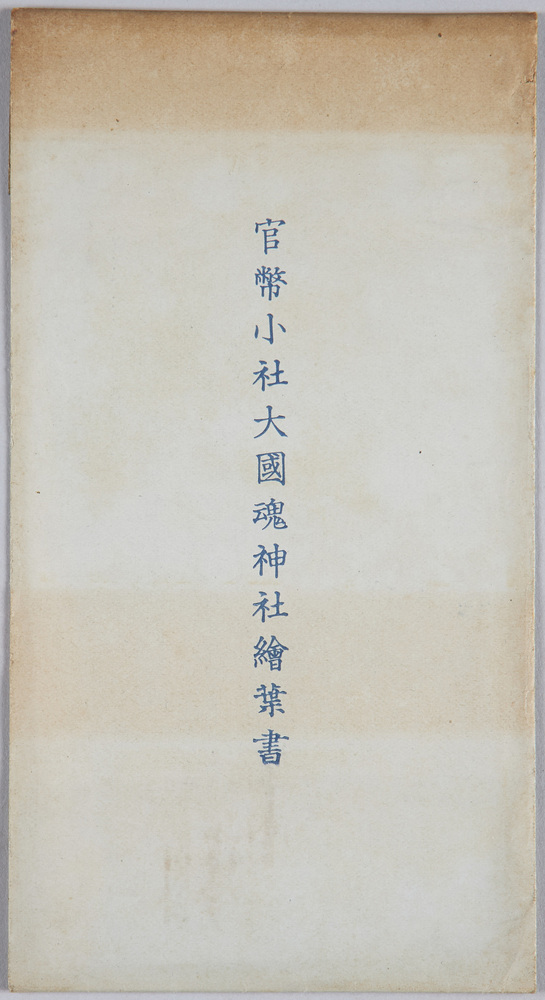 官幣小社大國魂神社繪葉書